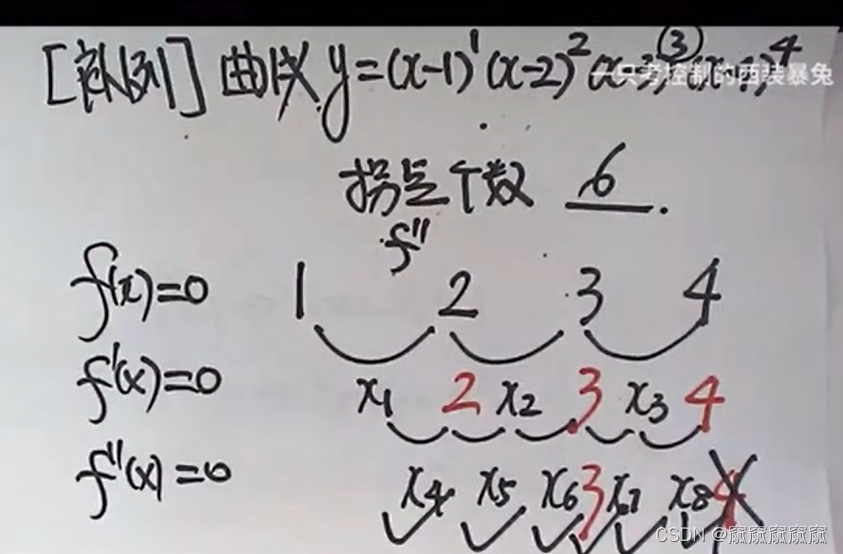 [补例] 曲线 y=(x-1)¹(x-2)²(x-3)³(x-4)⁴
一只考控制的西装暴兔
拐点个数 6 .
f''
f(x)=0 1 2 3 4
f'(x)=0 x₁ 2 x₂ 3 x₃ 4
f''(x)=0 x₄ x₅ x₆ 3 x₇ x₈ 4
CSDN